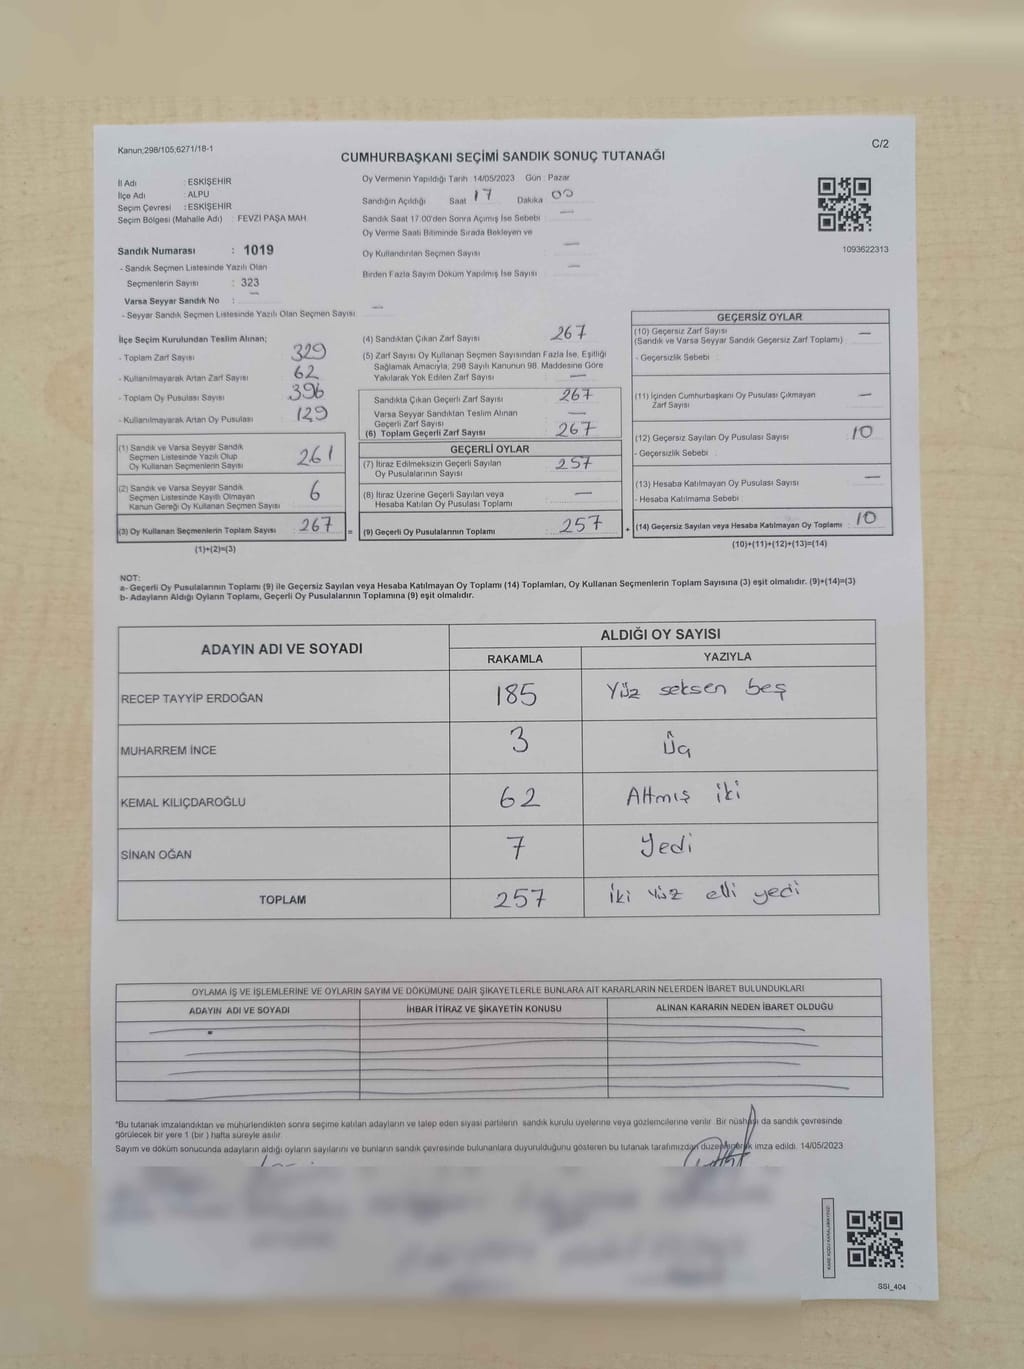 Kanun;298/105;6271/18-1
C/2
CUMHURBAŞKANI SEÇİMİ SANDIK SONUÇ TUTANAĞI
İl Adı : ESKİŞEHİR
İlçe Adı : ALPU
Seçim Çevresi : ESKİŞEHİR
Seçim Bölgesi (Mahalle Adı) : FEVZİ PAŞA MAH
Sandık Numarası : 1019
- Sandık Seçmen Listesinde Yazılı Olan
Seçmenlerin Sayısı : 323
Varsa Seyyar Sandık No : —
- Seyyar Sandık Seçmen Listesinde Yazılı Olan Seçmen Sayısı —
Oy Vermenin Yapıldığı Tarih 14/05/2023 Gün : Pazar
Sandığın Açıldığı Saat 17 Dakika 00
Sandık Saat 17.00'den Sonra Açımış İse Sebebi —
Oy Verme Saati Bitiminde Sırada Bekleyen ve
Oy Kullandırılan Seçmen Sayısı —
Birden Fazla Sayım Döküm Yapılmış İse Sayısı —
1093622313
İlçe Seçim Kurulundan Teslim Alınan;
- Toplam Zarf Sayısı 329
- Kullanılmayarak Artan Zarf Sayısı 62
- Toplam Oy Pusulası Sayısı 396
- Kullanılmayarak Artan Oy Pusulası 129
(1) Sandık ve Varsa Seyyar Sandık
Seçmen Listesinde Yazılı Olup
Oy Kullanan Seçmenlerin Sayısı 261
(2) Sandık ve Varsa Seyyar Sandık
Seçmen Listesinde Kayıtlı Olmayan
Kanun Gereği Oy Kullanan Seçmen Sayısı 6
(3) Oy Kullanan Seçmenlerin Toplam Sayısı 267 =
(1)+(2)=(3)
(4) Sandıktan Çıkan Zarf Sayısı 267
(5) Zarf Sayısı Oy Kullanan Seçmen Sayısından Fazla İse, Eşitliği
Sağlamak Amacıyla, 298 Sayılı Kanunun 98. Maddesine Göre
Yakılarak Yok Edilen Zarf Sayısı —
Sandıkta Çıkan Geçerli Zarf Sayısı 267
Varsa Seyyar Sandıktan Teslim Alınan
Geçerli Zarf Sayısı —
(6) Toplam Geçerli Zarf Sayısı 267
GEÇERLİ OYLAR
(7) İtiraz Edilmeksizin Geçerli Sayılan
Oy Pusulalarının Sayısı 257
(8) İtiraz Üzerine Geçerli Sayılan veya
Hesaba Katılan Oy Pusulası Toplamı —
(9) Geçerli Oy Pusulalarının Toplamı : 257 +
GEÇERSİZ OYLAR
(10) Geçersiz Zarf Sayısı —
(Sandık ve Varsa Seyyar Sandık Geçersiz Zarf Toplamı)
- Geçersizlik Sebebi :
(11) İçinden Cumhurbaşkanı Oy Pusulası Çıkmayan
Zarf Sayısı —
(12) Geçersiz Sayılan Oy Pusulası Sayısı 10
- Geçersizlik Sebebi :
(13) Hesaba Katılmayan Oy Pusulası Sayısı —
- Hesaba Katılmama Sebebi :
(14) Geçersiz Sayılan veya Hesaba Katılmayan Oy Toplamı : 10
(10)+(11)+(12)+(13)=(14)
NOT:
a- Geçerli Oy Pusulalarının Toplamı (9) ile Geçersiz Sayılan veya Hesaba Katılmayan Oy Toplamı (14) Toplamları, Oy Kullanan Seçmenlerin Toplam Sayısına (3) eşit olmalıdır. (9)+(14)=(3)
b- Adayların Aldığı Oyların Toplamı, Geçerli Oy Pusulalarının Toplamına (9) eşit olmalıdır.
ADAYIN ADI VE SOYADI ALDIĞI OY SAYISI
RAKAMLA YAZIYLA
RECEP TAYYİP ERDOĞAN 185 Yüz seksen beş
MUHARREM İNCE 3 Üç
KEMAL KILIÇDAROĞLU 62 Altmış iki
SİNAN OĞAN 7 Yedi
TOPLAM 257 İki yüz elli yedi
OYLAMA İŞ VE İŞLEMLERİNE VE OYLARIN SAYIM VE DÖKÜMÜNE DAİR ŞİKAYETLERLE BUNLARA AİT KARARLARIN NELERDEN İBARET BULUNDUKLARI
ADAYIN ADI VE SOYADI İHBAR İTİRAZ VE ŞİKAYETİN KONUSU ALINAN KARARIN NEDEN İBARET OLDUĞU
*Bu tutanak imzalandıktan ve mühürlendikten sonra seçime katılan adayların ve talep eden siyasi partilerin sandık kurulu üyelerine veya gözlemcilerine verilir. Bir nüshası da sandık çevresinde
görülecek bir yere 1 (bir) hafta süreyle asılır.
Sayım ve döküm sonucunda adayların aldığı oyların sayılarını ve bunların sandık çevresinde bulunanlara duyurulduğunu gösteren bu tutanak tarafımızdan düzenlenerek imza edildi. 14/05/2023
SSI_404